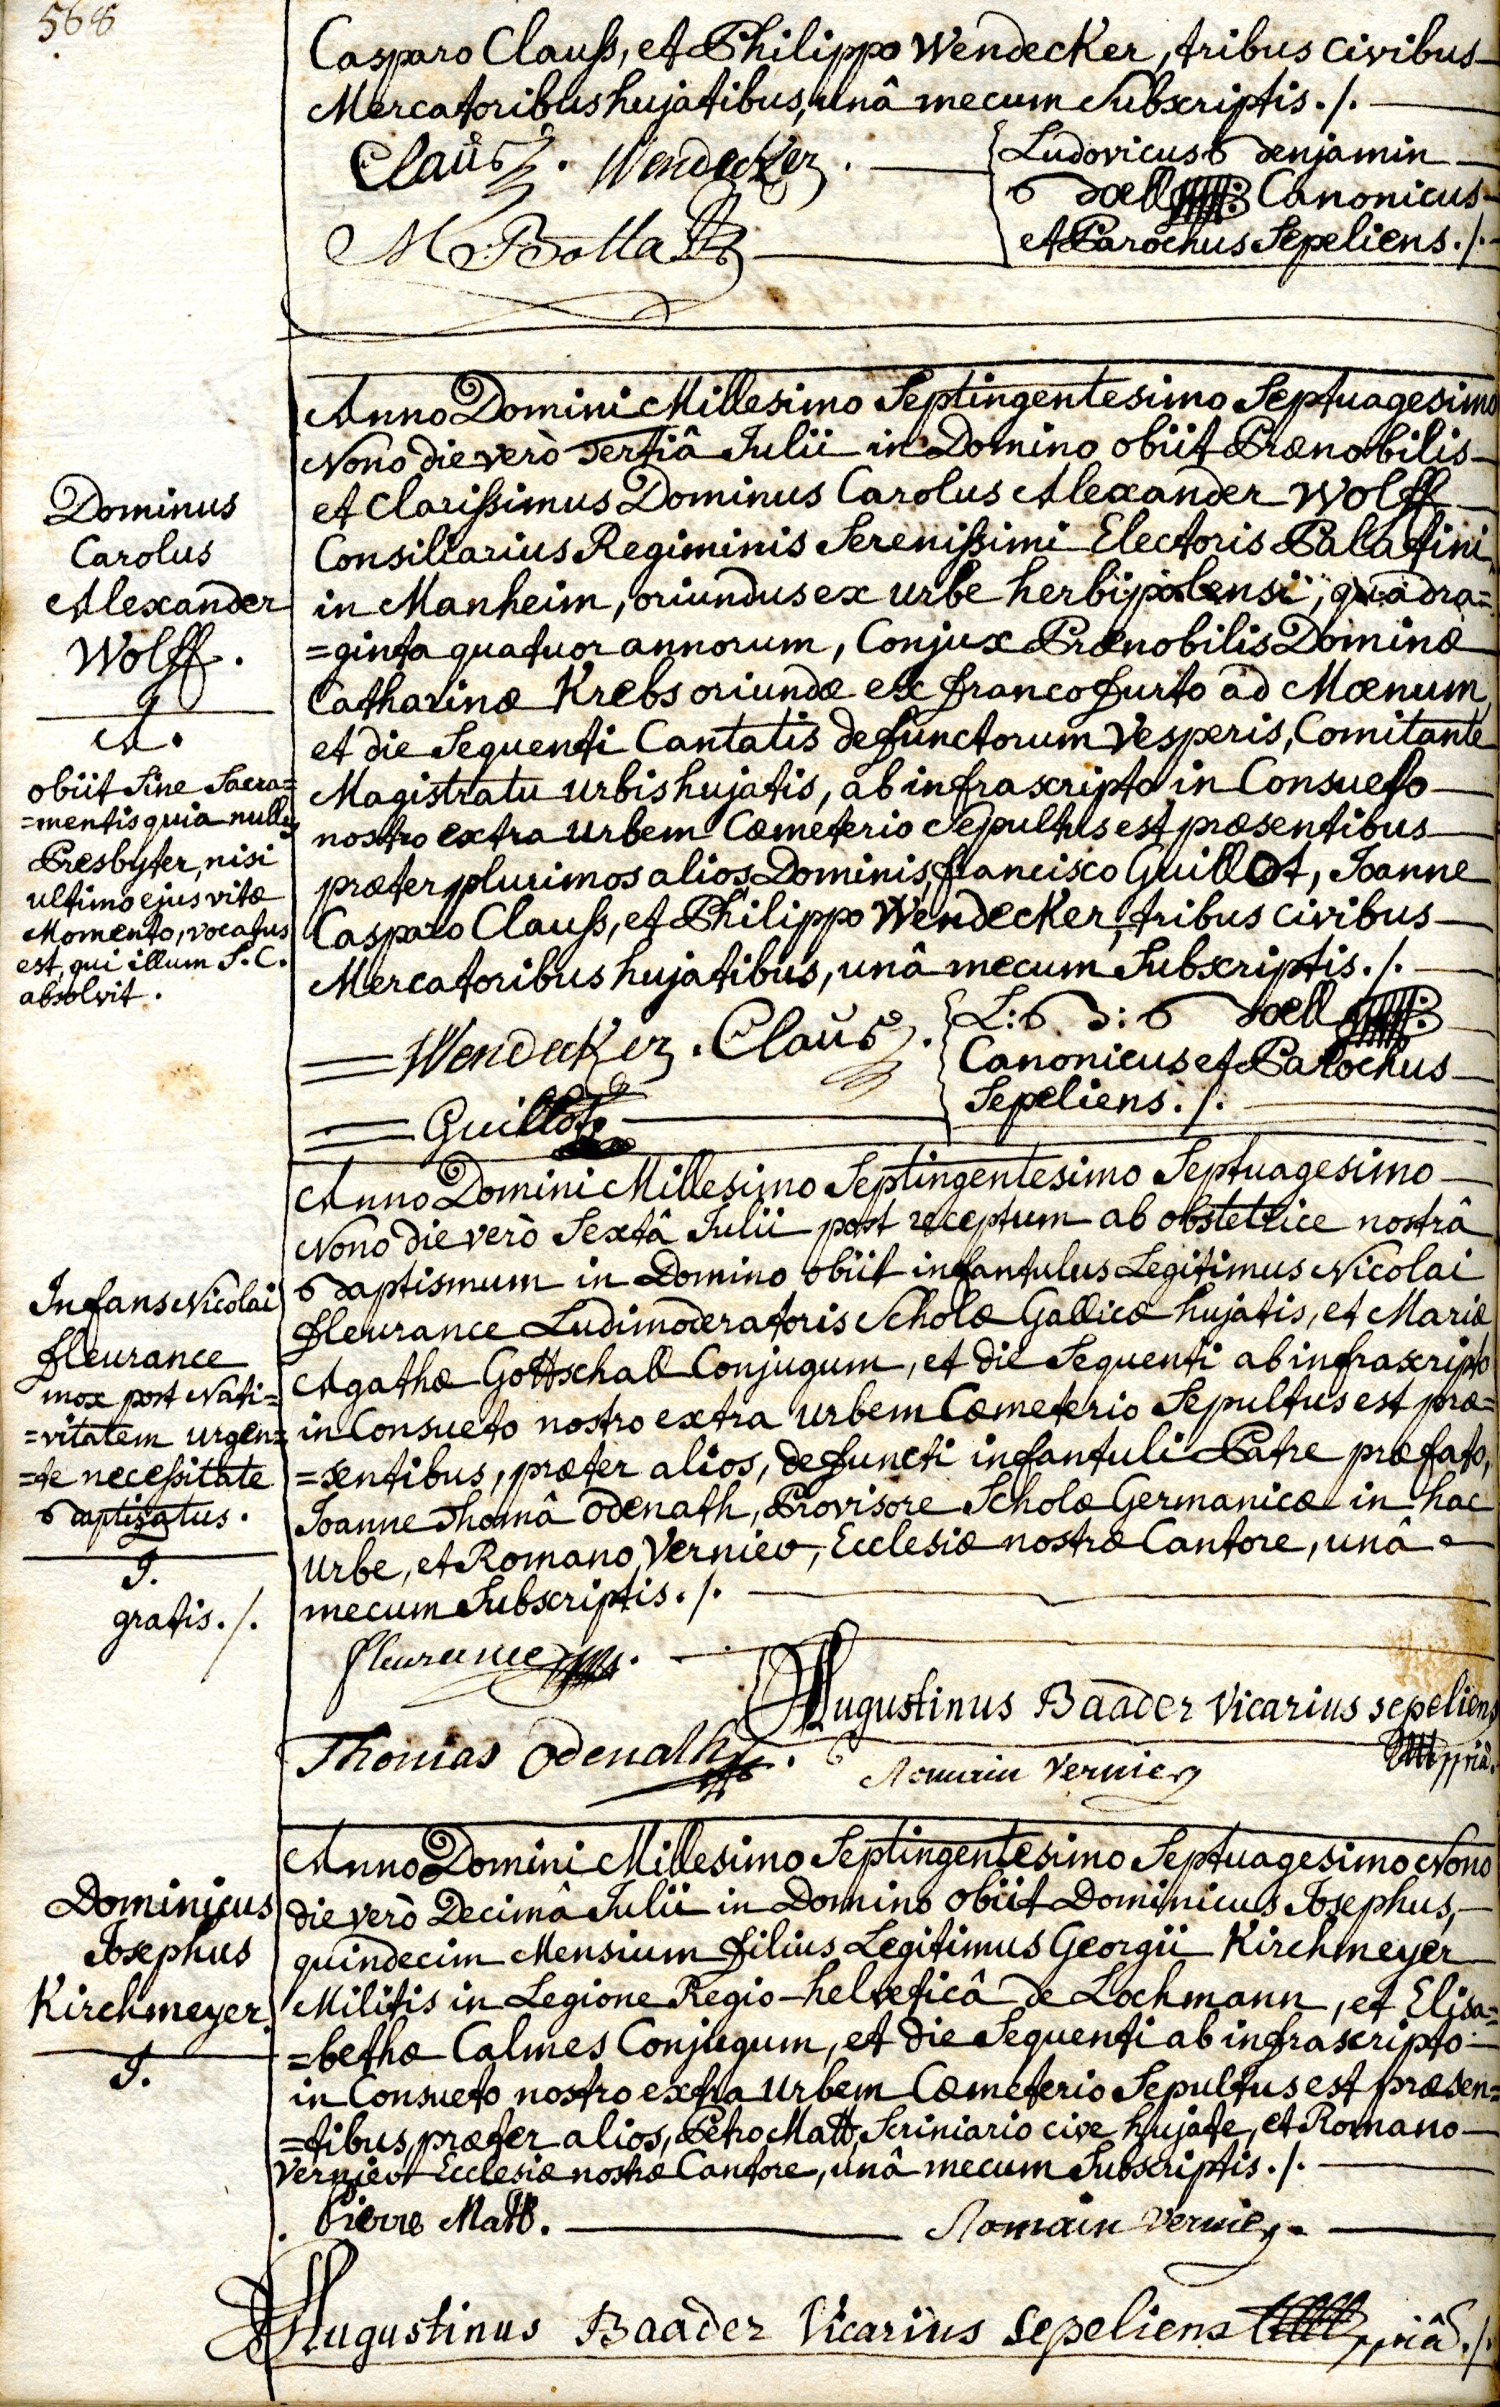 568
Casparo Clauß, et Philippo Wendecker, tribus civibus
Mercatoribus hujatibus, unâ mecum Subscriptis ./.
Clauß. Wendecker.
M Botta
Ludovicus Benjamin
Boell Canonicus
et Parochus Sepeliens ./.
Anno Domini Millesimo Septingentesimo Septuagesimo
Nono die verò Tertiâ Julii in Domino obiit Prænobilis
et Clarißimus Dominus Carolus Alexander Wolff
Consiliarius Regiminis Serenißimi Electoris Palatini
in Manheim, oriundus ex urbe herbipolensi, quadra=
=ginta quatuor annorum, Conjux Prænobilis Dominæ
Catharinæ Krebs oriundæ ex francofurto ad Mœnum,
et die Sequenti Cantatis defunctorum Vesperis, Comitante
Magistratu urbis hujatis, ab infrascripto in Consueto
nostro extra urbem Cœmeterio Sepultus est præsentibus
præter plurimos alios Dominis, francisco Guillot, Joanne
Casparo Clauß, et Philippo Wendecker, tribus civibus
Mercatoribus hujatibus, unâ mecum Subscriptis ./.
Dominus
Carolus
Alexander
Wolff.
A.
obiit Sine Sacra=
=mentis quia nullus
Presbyter, nisi
ultimo ejus vitæ
Momento, vocatus
est, qui illum S. C.
absolvit.
Wendecker. Clauß.
Guillot
L: B: Boell
Canonicus et Parochus
Sepeliens ./.
Anno Domini Millesimo Septingentesimo Septuagesimo
Nono die verò Sextâ Julii post receptum ab obstetrice nostrâ
Baptismum in Domino obiit infantulus Legitimus Nicolai
fleurance Ludimoderatoris Scholæ Gallicæ hujatis, et Mariæ
Agathæ Gottschall Conjugum, et die Sequenti ab infrascripto
in Consueto nostro extra urbem Cœmeterio Sepultus est præ=
=sentibus, præter alios, defuncti infantuli Patre præfato,
Joanne Thomâ Odenath, Provisore Scholæ Germanicæ in hac
urbe, et Romano Vernier, Ecclesiæ nostræ Cantore, unâ
mecum Subscriptis ./.
Infans Nicolai
fleurance
mox post Nati=
=vitatem urgen=
=te neceßitate
Baptizatus.
J.
gratis ./.
fleurance
Augustinus Baader Vicarius sepeliens
ppriâ.
Thomas Odenath
Romain Vernier
Anno Domini Millesimo Septingentesimo Septuagesimo Nono
die verò Decimâ Julii in Domino obiit Dominicus Josephus,
quindecim Mensium filius Legitimus Georgii Kirchmeyer
Militis in Legione Regio-helveticâ de Lochmann, et Elisa=
=bethæ Calmes Conjugum, et die Sequenti ab infrascripto
in Consueto nostro extra urbem Cœmeterio Sepultus est præsen=
=tibus, præter alios, Petro Matt, Scriniario cive hujate, et Romano
Vernier Ecclesiæ nostræ Cantore, unâ mecum Subscriptis ./.
Dominicus
Josephus
Kirchmeyer.
J.
Pierre Matt.
Romain Vernier
Augustinus Baader Vicarius sepeliens ppriâ ./.